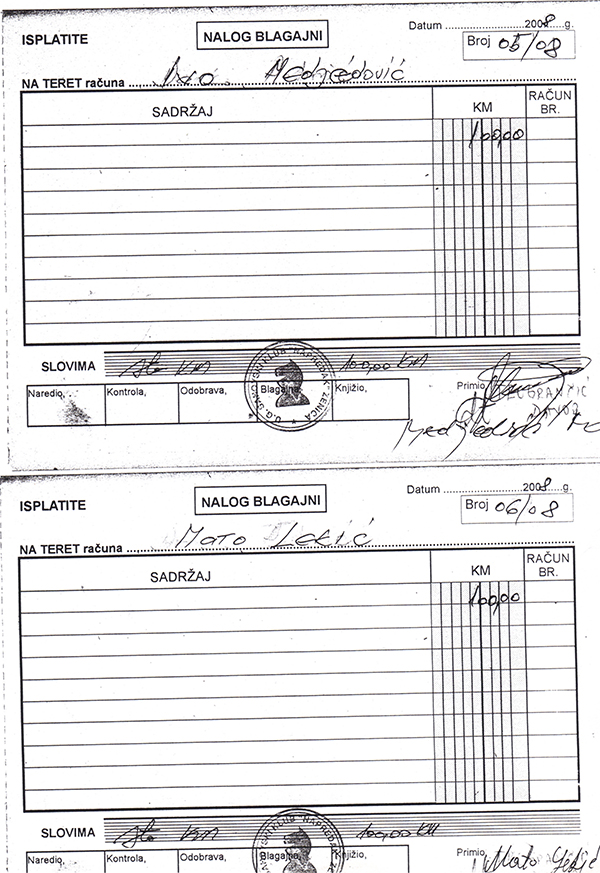 ISPLATITE
NALOG BLAGAJNI
Datum ..................2008.....g.
Broj 05/08
NA TERET računa .. Medjedović
SADRŽAJ
KM
RAČUN BR.
100,00
SLOVIMA Sto KM 100,00 KM
Naredio,
Kontrola,
Odobrava,
Blagajna,
Knjižio,
Primio
ŠAHOVSKI KLUB "NAPREDAK" ZENICA
ISPLATITE
NALOG BLAGAJNI
Datum ..................2008.....g.
Broj 06/08
NA TERET računa .. Mato Lekić
SADRŽAJ
KM
RAČUN BR.
100,00
SLOVIMA Sto KM 100,00 KM
Naredio,
Kontrola,
Odobrava,
Blagajna,
Knjižio,
Primio Mato Lekić